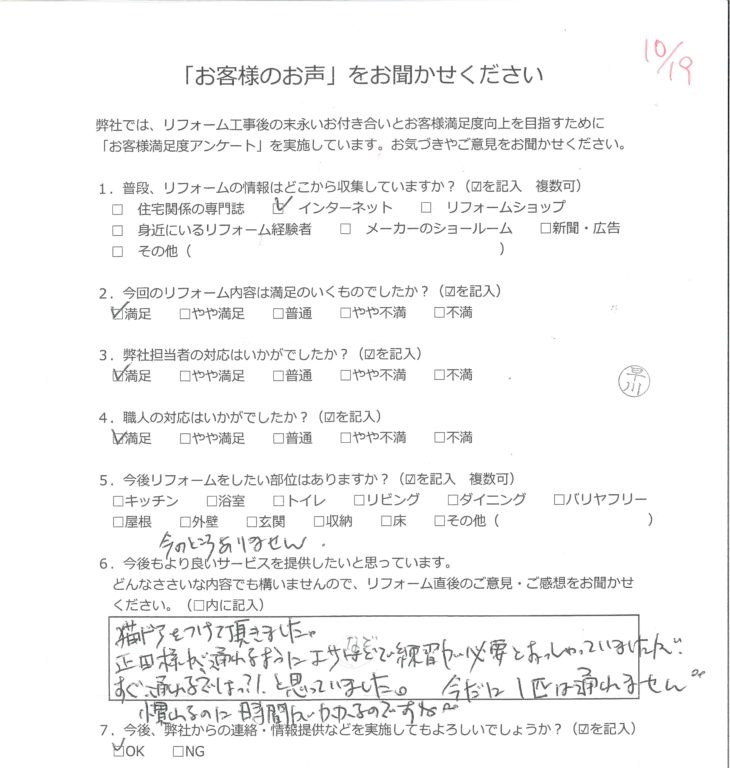 10/19
「お客様のお声」をお聞かせください
弊社では、リフォーム工事後の末永いお付き合いとお客様満足度向上を目指すために
「お客様満足度アンケート」を実施しています。お気づきやご意見をお聞かせください。
1．普段、リフォームの情報はどこから収集していますか？（☑を記入　複数可）
□ 住宅関係の専門誌　☑ インターネット　□ リフォームショップ
□ 身近にいるリフォーム経験者　□ メーカーのショールーム　□新聞・広告
□ その他（　　　　　）
2．今回のリフォーム内容は満足のいくものでしたか？（☑を記入）
☑満足　□やや満足　□普通　□やや不満　□不満
3．弊社担当者の対応はいかがでしたか？（☑を記入）
☑満足　□やや満足　□普通　□やや不満　□不満
早川
4．職人の対応はいかがでしたか？（☑を記入）
☑満足　□やや満足　□普通　□やや不満　□不満
5．今後リフォームをしたい部位はありますか？（☑を記入　複数可）
□キッチン　□浴室　□トイレ　□リビング　□ダイニング　□バリヤフリー
□屋根　□外壁　□玄関　□収納　□床　□その他（　　　　　）
今のところありません．
6．今後もより良いサービスを提供したいと思っています。
どんなささいな内容でも構いませんので、リフォーム直後のご意見・ご感想をお聞かせ
ください。（□内に記入）
猫ドアをつけて頂きました。
正田様が、通れるようにエサなどで練習が必要とおっしゃっていましたが、
すぐ通れるのでは？！と思っていました。 今だに1匹は通れません
慣れるのに時間がかかるのですね
7．今後、弊社からの連絡・情報提供などを実施してもよろしいでしょうか？（☑を記入）
☑OK　□NG